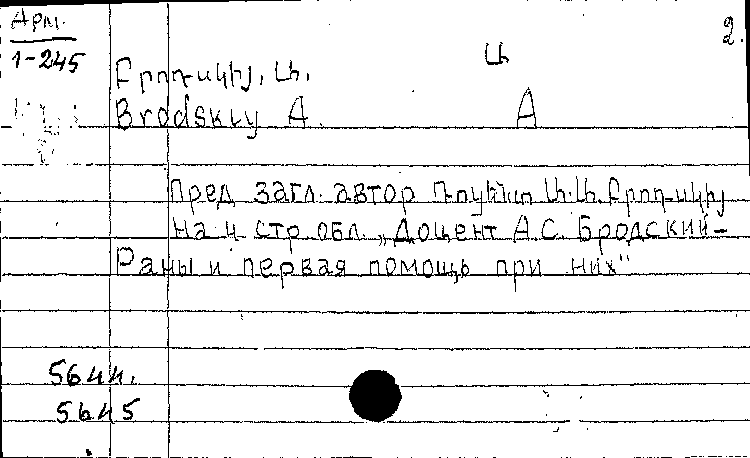 Арм.
1-245
2.
Ա
Բրոդսկիյ, Ա.
Brodskiy A.
A
Пред загл. автор Դոցենտ Ա.Ս. Բրոդսկիյ
на 4 стр. обл. „Доцент А.С. Бродский -
Раны и первая помощь при них"
5644.
5645